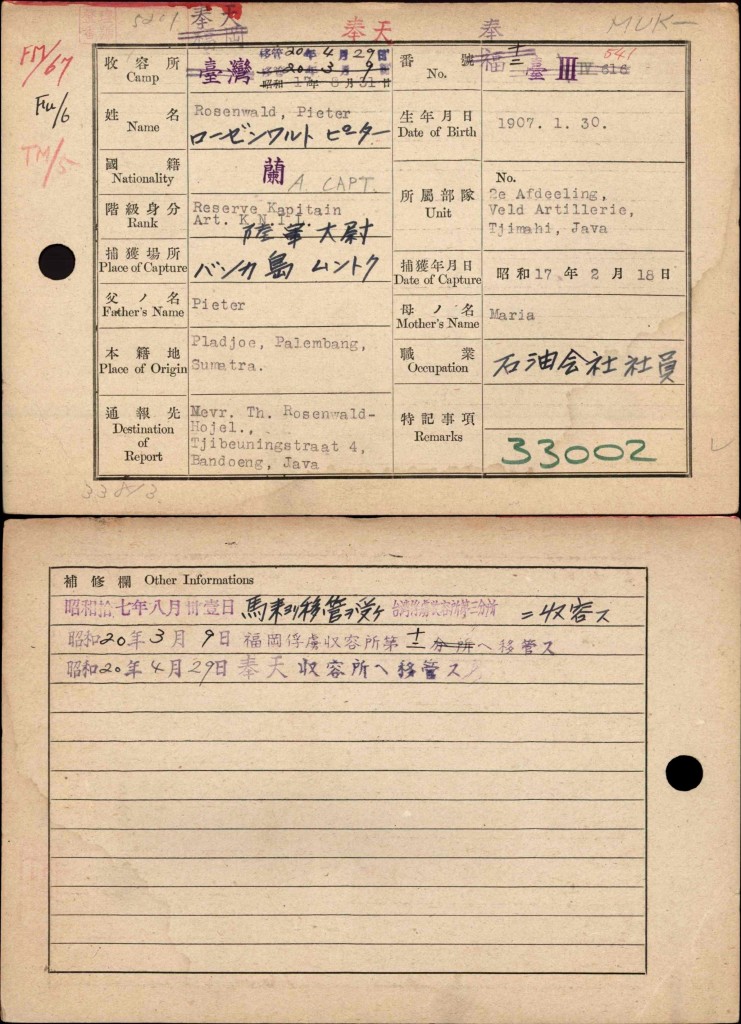 5201 奉天 奉天 奉 MUK-
FM/67
Fu/6
TM/5
收容所 Camp
臺灣
移管20年4月29日
移管20年3月9日
昭和17年8月31日
番號 No.
福 十二 臺 III IV 616 541
姓名 Name
Rosenwald, Pieter
ローゼンワルト ピーター
生年月日 Date of Birth
1907. 1. 30.
國籍 Nationality
蘭 A. CAPT.
階級身分 Rank
Reserve Kapitain
Art. K.N.I.L.
陸軍大尉
所屬部隊 Unit
No.
2e Afdeeling,
Veld Artillerie,
Tjimahi, Java
捕獲場所 Place of Capture
バンカ島 ムントク
捕獲年月日 Date of Capture
昭和17年2月18日
父ノ名 Father's Name
Pieter
母ノ名 Mother's Name
Maria
本籍地 Place of Origin
Pladjoe, Palembang,
Sumatra.
職業 Occupation
石油会社社員
通報先 Destination of Report
Mevr. Th. Rosenwald-
Hojel.,
Tjibeuningstraat 4,
Bandoeng, Java
特記事項 Remarks
33002
補修欄 Other Informations
昭和拾七年八月卅壹日 馬来ヨリ移管ヲ受ケ 台湾俘虜収容所第三分所 ニ収容ス
昭和20年3月9日 福岡俘虜収容所第十二分所へ移管ス
昭和20年4月29日 奉天収容所へ移管ス